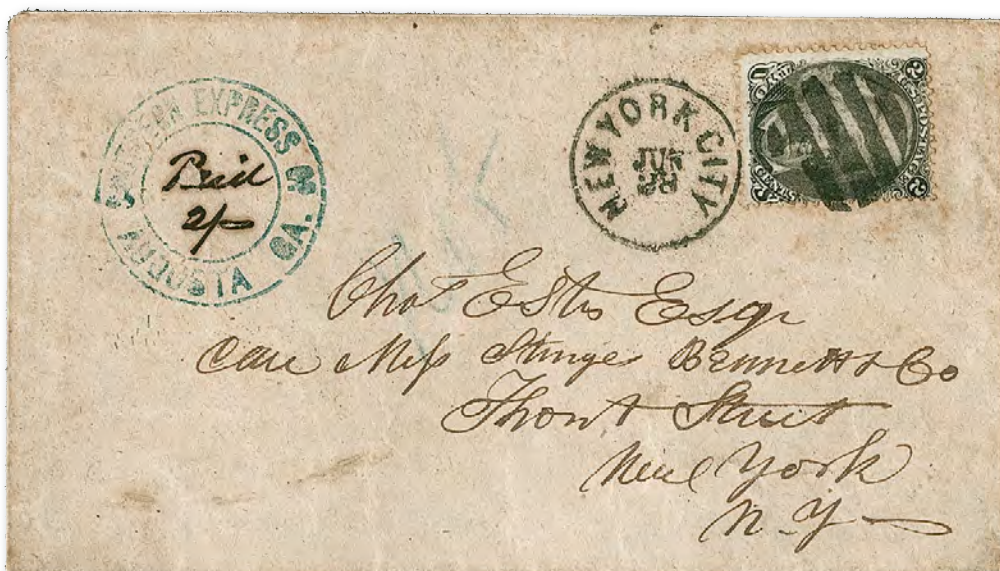 SOUTHERN EXPRESS Co
AUGUSTA GA.
Paid
2/-
NEW YORK CITY
JUN
28
2 2
Chas Estes Esqr
Care Mess Sturges Bennett & Co
Front Street
New York
N-Y